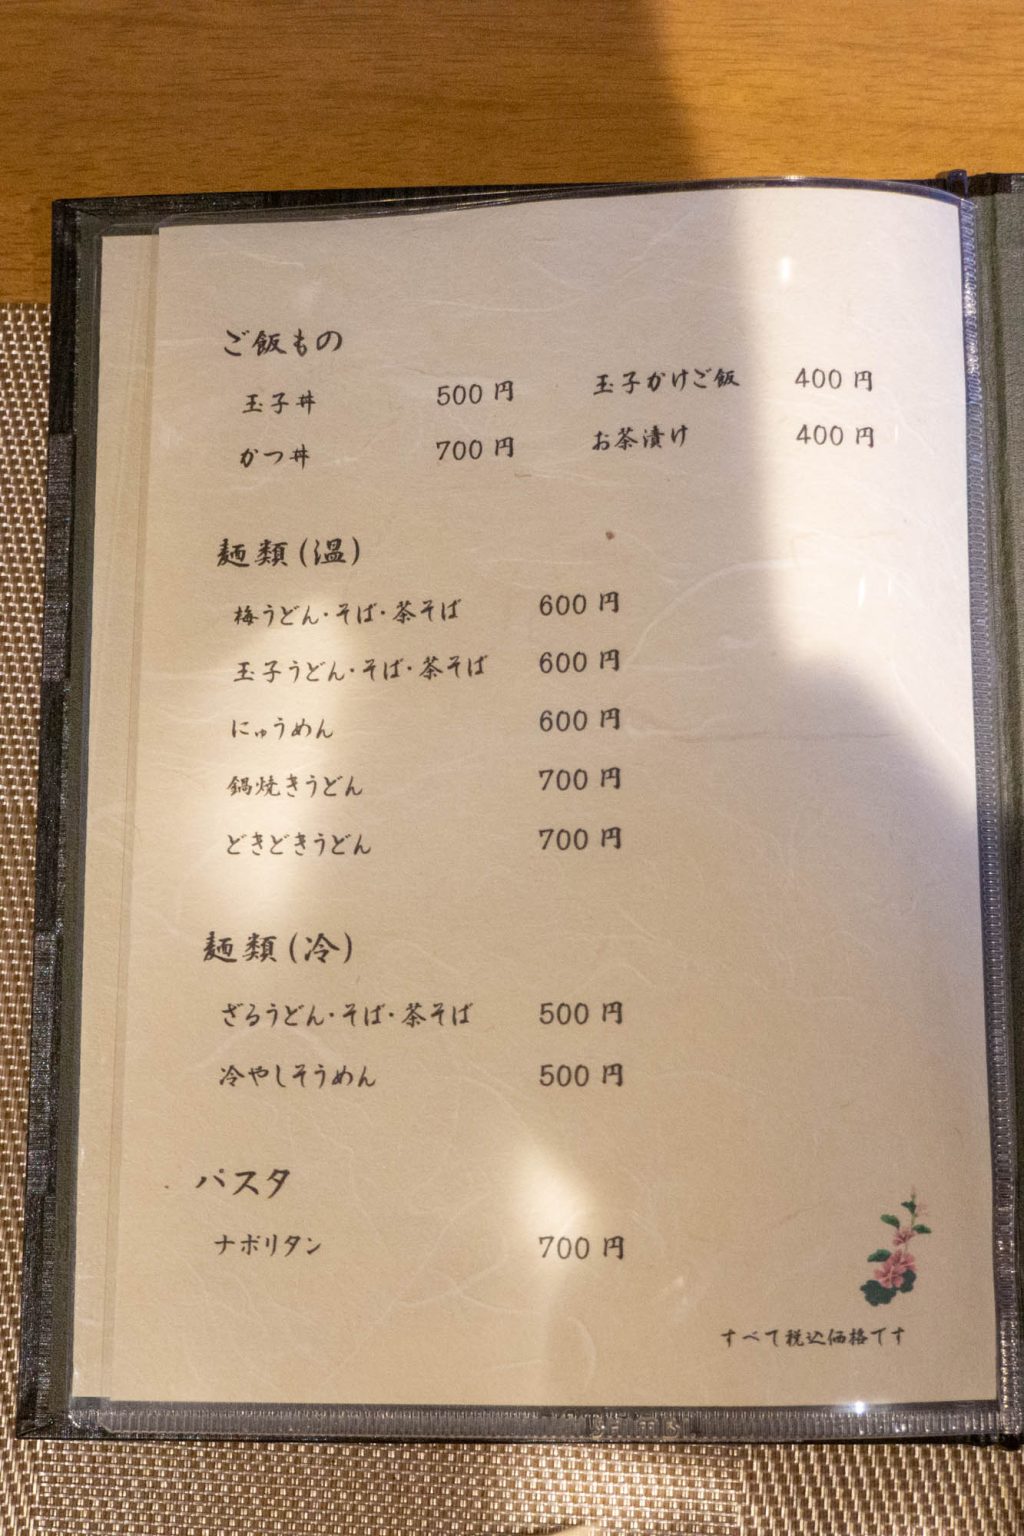 ご飯もの
玉子丼 500円 玉子かけご飯 400円
かつ丼 700円 お茶漬け 400円
麺類(温)
梅うどん・そば・茶そば 600円
玉子うどん・そば・茶そば 600円
にゅうめん 600円
鍋焼きうどん 700円
どきどきうどん 700円
麺類(冷)
ざるうどん・そば・茶そば 500円
冷やしそうめん 500円
パスタ
ナポリタン 700円
すべて税込価格です